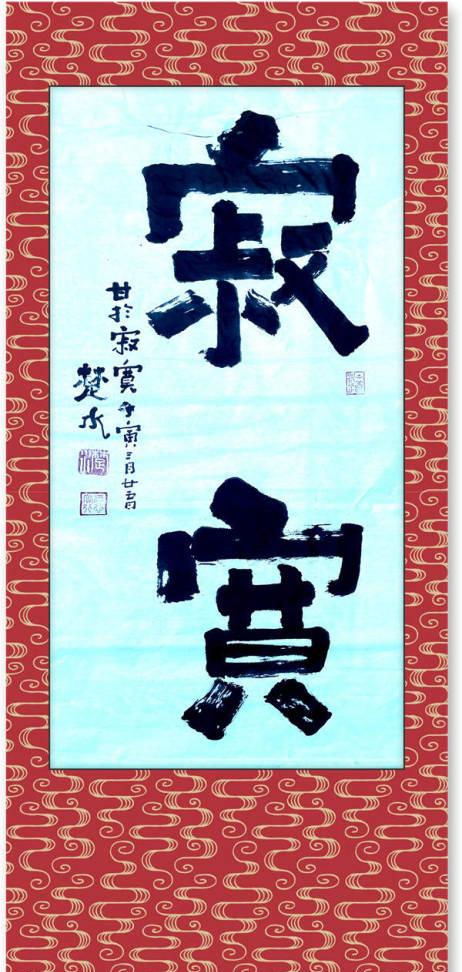 寂寞
甘於寂寞 寅三月廿五日
楚水